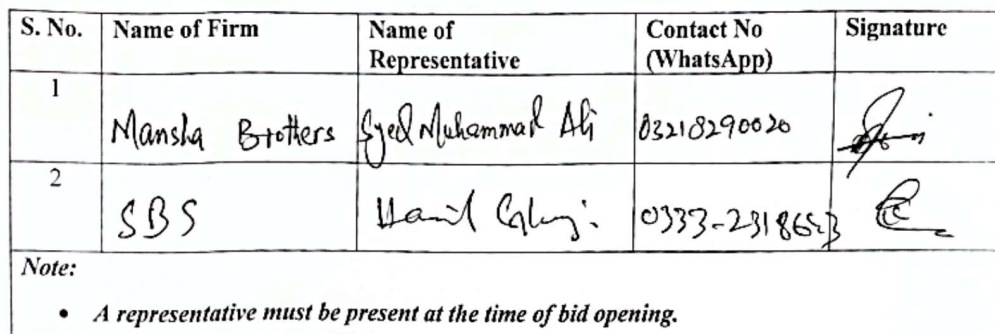 S. No. Name of Firm Name of Representative Contact No (WhatsApp) Signature
1 Mansha Brothers Syed Muhammad Ali 03218290020
2 SBS 
Note:
• A representative must be present at the time of bid opening.